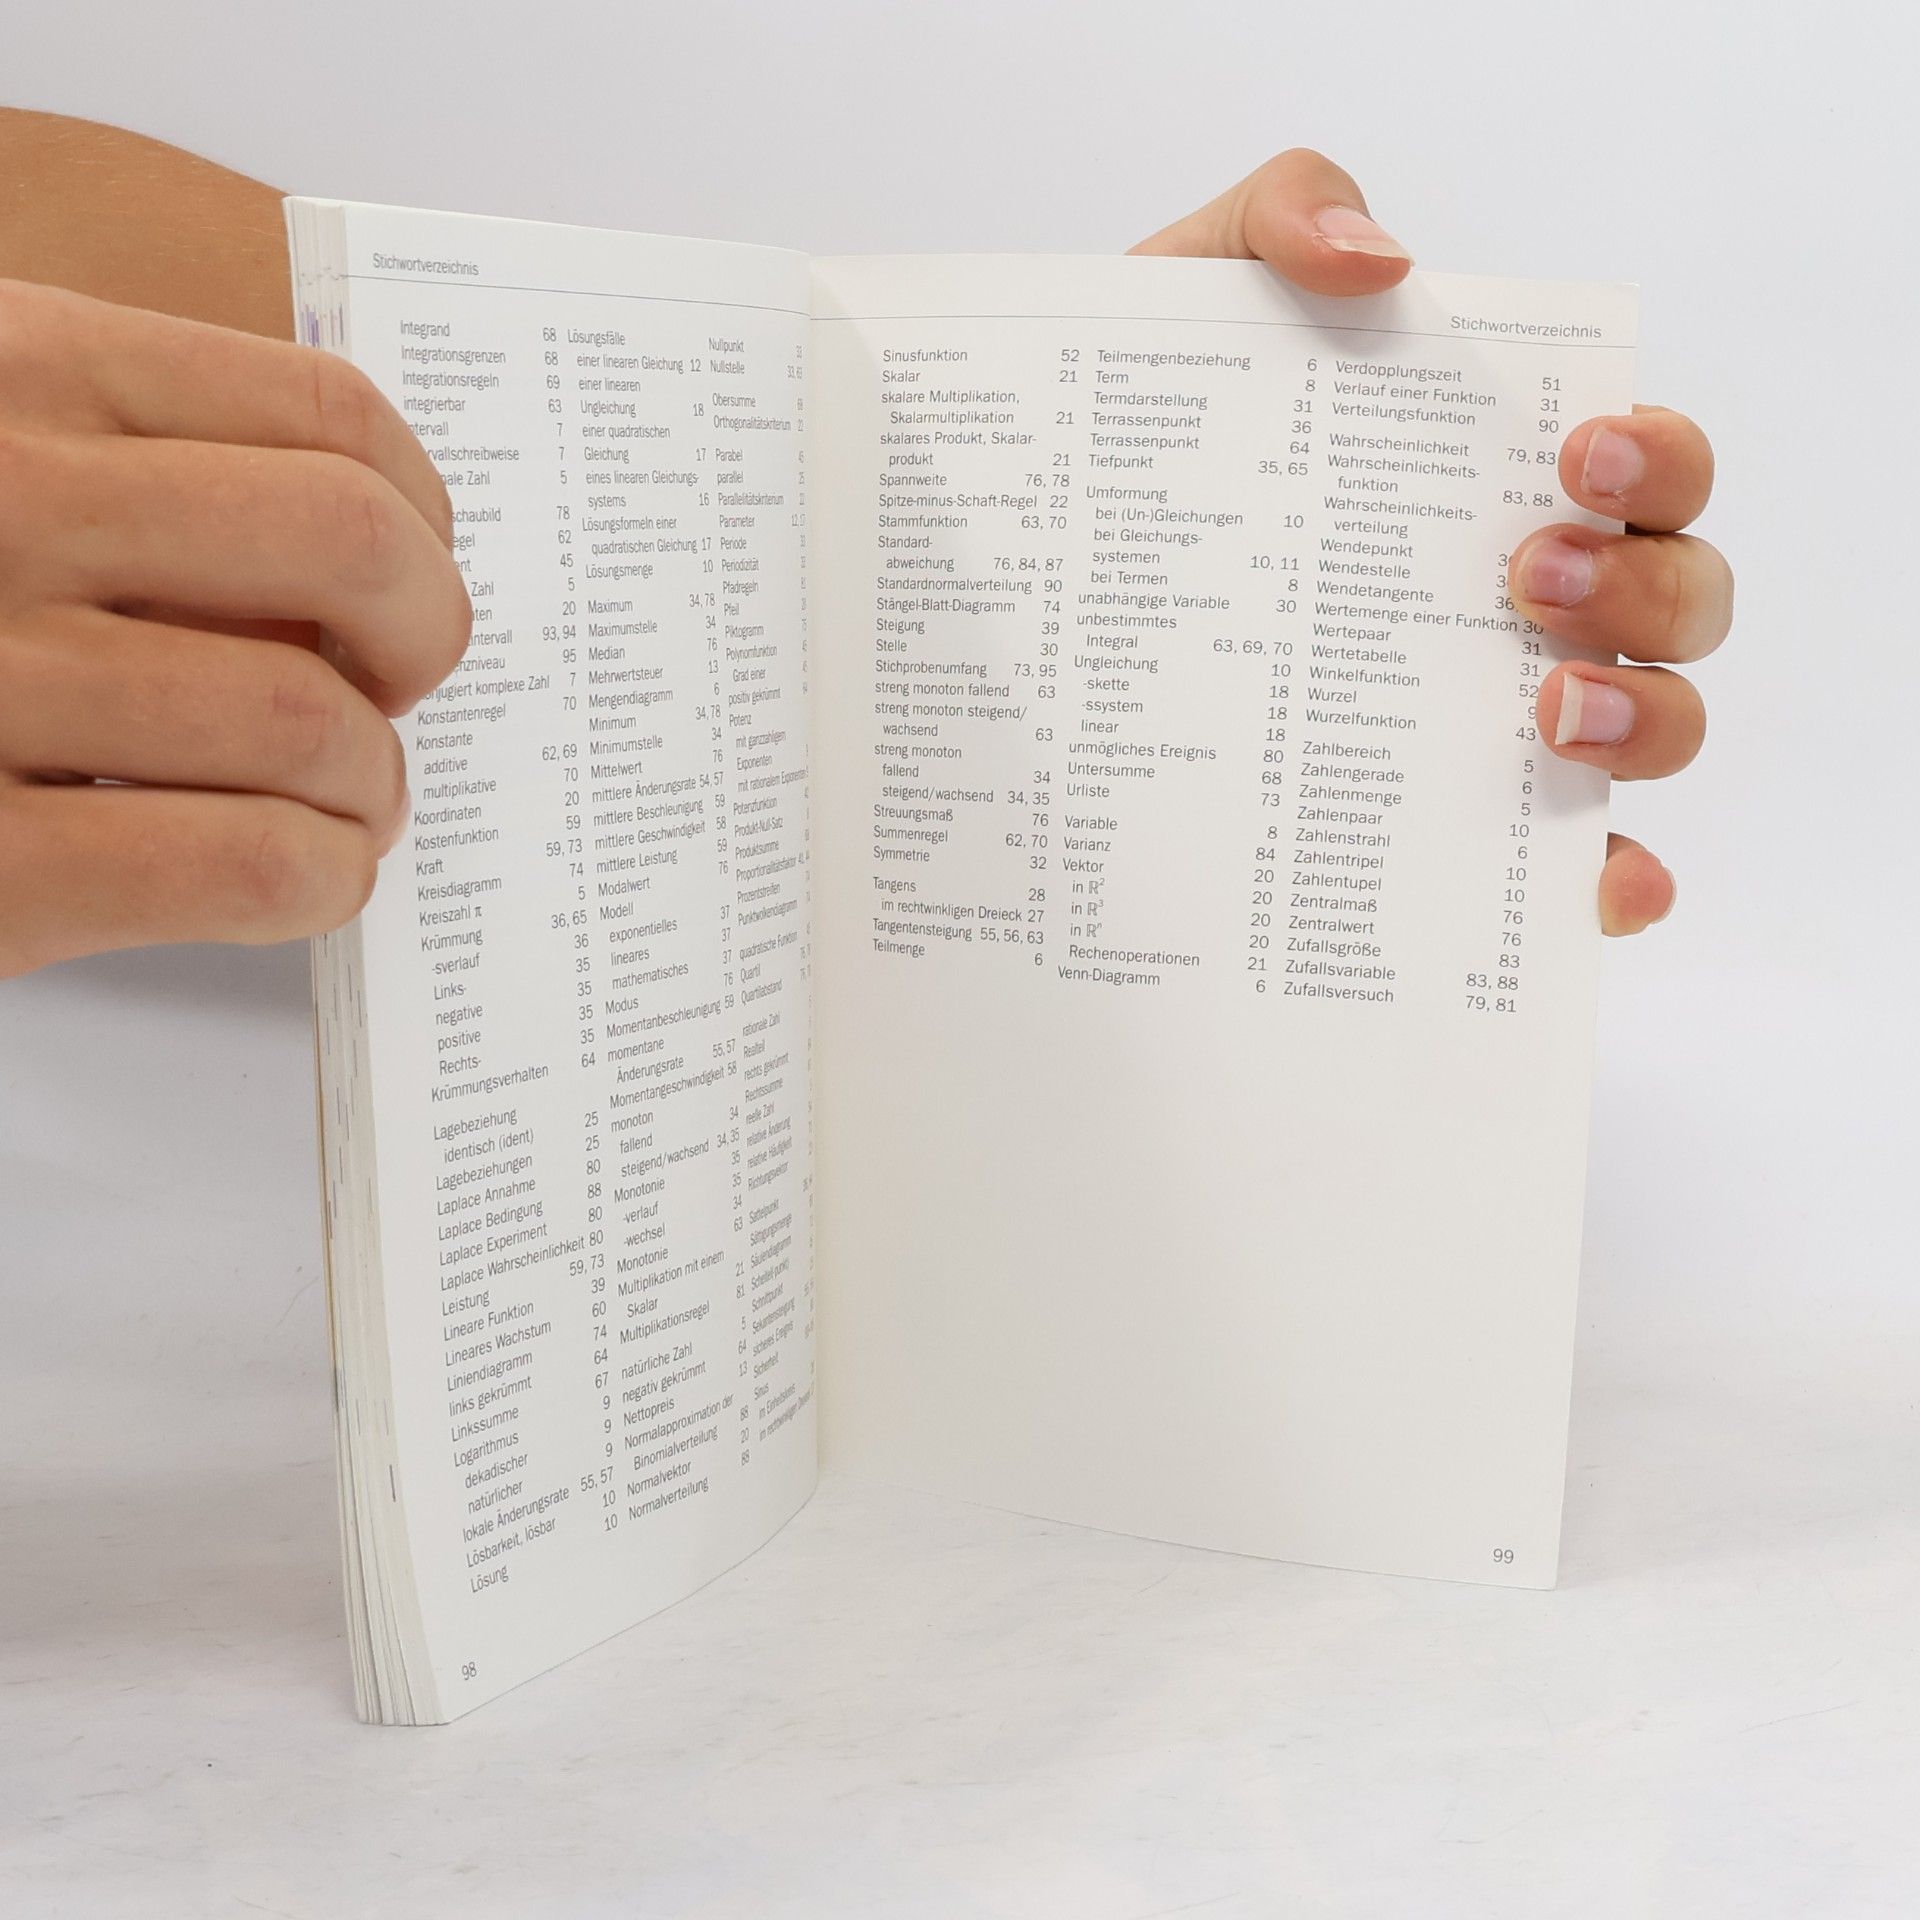 Stichwortverzeichnis
Integrand 68
Integrationsgrenzen 68
Integrationsregeln 69
integrierbar 63
ntervall 7
rvallschreibweise 7
nale Zahl 5
schaubild 78
egel 62
ent 45
Zahl 5
ten 20
intervall 93, 94
nzniveau 95
onjugiert komplexe Zahl 7
Konstantenregel 70
Konstante
additive 62, 69
multiplikative 70
Koordinaten 20
Kostenfunktion 59
Kraft 59, 73
Kreisdiagramm 74
Kreiszahl π 5
Krümmung 36, 65
-sverlauf 36
Links- 35
negative 35
positive 35
Rechts- 35
Krümmungsverhalten 64
Lagebeziehung
identisch (ident) 25
Lagebeziehungen 25
Laplace Annahme 80
Laplace Bedingung 88
Laplace Experiment 80
Laplace Wahrscheinlichkeit 80
Leistung 59, 73
Lineare Funktion 39
Lineares Wachstum 60
Liniendiagramm 74
links gekrümmt 64
Linkssumme 67
Logarithmus 9
dekadischer 9
natürlicher 9
lokale Änderungsrate 55, 57
Lösbarkeit, lösbar 10
Lösung 10
Lösungsfälle
einer linearen Gleichung 12
einer linearen
Ungleichung 18
einer quadratischen
Gleichung 17
eines linearen Gleichungs-
systems 16
Lösungsformeln einer
quadratischen Gleichung 17
Lösungsmenge 10
Maximum 34, 78
Maximumstelle 34
Median 76
Mehrwertsteuer 13
Mengendiagramm 6
Minimum 34, 78
Minimumstelle 34
Mittelwert 76
mittlere Änderungsrate 54, 57
mittlere Beschleunigung 59
mittlere Geschwindigkeit 58
mittlere Leistung 59
Modalwert 76
Modell
exponentielles 37
lineares 37
mathematisches 37
Modus 76
Momentanbeschleunigung 59
momentane
Änderungsrate 55, 57
Momentangeschwindigkeit 58
monoton
fallend 34
steigend/wachsend 34, 35
Monotonie 35
-verlauf 35
-wechsel 34
Monotonie 63
Multiplikation mit einem
Skalar 21
Multiplikationsregel 81
natürliche Zahl 5
negativ gekrümmt 64
Nettopreis 13
Normalapproximation der
Binomialverteilung 88
Normalvektor 20
Normalverteilung 88
Nullpunkt
Nullstelle
Obersumme
Orthogonalitätskriterium
Parabel
parallel
Parallelitätskriterium
Parameter
Periode
Periodizität
Pfadregeln
Pfeil
Piktogramm
Polynomfunktion
Grad einer
positiv gekrümmt
Potenz
mit ganzzahligem
Exponenten
mit rationalem Exponenten
Potenzfunktion
Produkt-Null-Satz
Produktsumme
Proportionalitätsfaktor
Prozentstreifen
Punktwolkendiagramm
quadratische Funktion
Quartil
Quartilabstand
rationale Zahl
Realteil
rechts gekrümmt
Rechtssumme
reelle Zahl
relative Änderung
relative Häufigkeit
Richtungsvektor
Sattelpunkt
Sättigungsmenge
Säulendiagramm
Scheitel(-punkt)
Schnittpunkt
Sekantensteigung
sicheres Ereignis
Sicherheit
Sinus
im Einheitskreis
im rechtwinkligen Dreieck
98
Stichwortverzeichnis
Sinusfunktion 52
Skalar 21
skalare Multiplikation,
Skalarmultiplikation 21
skalares Produkt, Skalar-
produkt 21
Spannweite 76, 78
Spitze-minus-Schaft-Regel 22
Stammfunktion 63, 70
Standard-
abweichung 76, 84, 87
Standardnormalverteilung 90
Stängel-Blatt-Diagramm 74
Steigung 39
Stelle 30
Stichprobenumfang 73, 95
streng monoton fallend 63
streng monoton steigend/
wachsend 63
streng monoton
fallend 34
steigend/wachsend 34, 35
Streuungsmaß 76
Summenregel 62, 70
Symmetrie 32
Tangens 28
im rechtwinkligen Dreieck 27
Tangentensteigung 55, 56, 63
Teilmenge 6
Teilmengenbeziehung 6
Term 8
Termdarstellung 31
Terrassenpunkt 36
Terrassenpunkt 64
Tiefpunkt 35, 65
Umformung
bei (Un-)Gleichungen 10
bei Gleichungs-
systemen 10, 11
bei Termen 8
unabhängige Variable 30
unbestimmtes
Integral 63, 69, 70
Ungleichung 10
-skette 18
-ssystem 18
linear 18
unmögliches Ereignis 80
Untersumme 68
Urliste 73
Variable 8
Varianz 84
Vektor 20
in ℝ² 20
in ℝ³ 20
in ℝⁿ 20
Rechenoperationen 21
Venn-Diagramm 6
Verdopplungszeit 51
Verlauf einer Funktion 31
Verteilungsfunktion 90
Wahrscheinlichkeit 79, 83
Wahrscheinlichkeits-
funktion 83, 88
Wahrscheinlichkeits-
verteilung
Wendepunkt
Wendestelle
Wendetangente 36,
Wertemenge einer Funktion 30
Wertepaar 31
Wertetabelle 31
Winkelfunktion 52
Wurzel 9
Wurzelfunktion 43
Zahlbereich 5
Zahlengerade 6
Zahlenmenge 5
Zahlenpaar 10
Zahlenstrahl 6
Zahlentripel 10
Zahlentupel 10
Zentralmaß 76
Zentralwert 76
Zufallsgröße 83
Zufallsvariable 83, 88
Zufallsversuch 79, 81
99